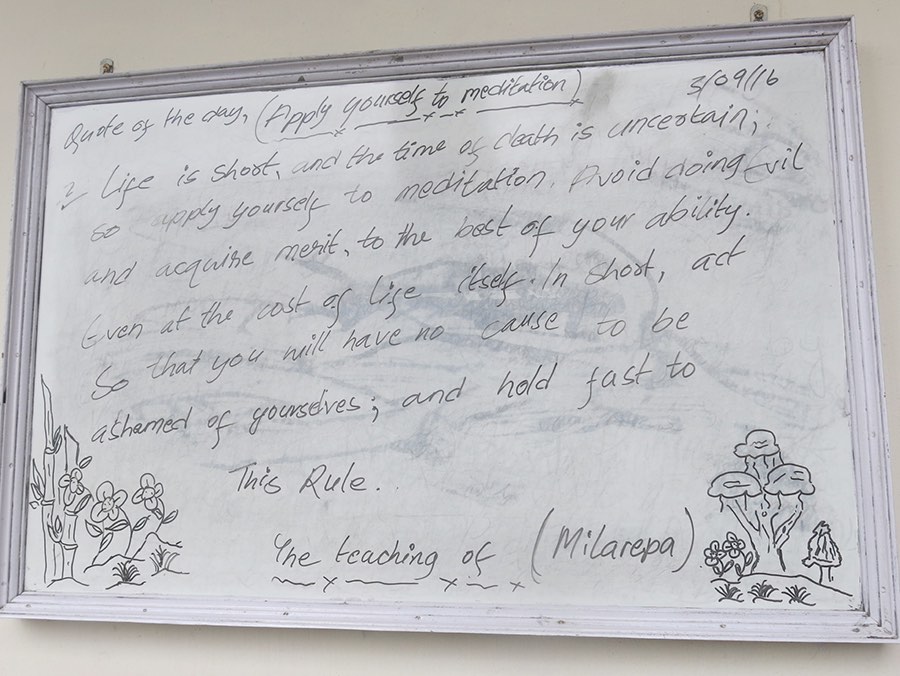 Quote of the day, (Apply yourself to meditation) 3/09/16
Life is short, and the time of death is uncertain;
so apply yourself to meditation. Avoid doing Evil
and acquire merit, to the best of your ability.
Even at the cost of life itself. In short, act
So that you will have no cause to be
ashamed of yourselves; and hold fast to
This Rule.
The teaching of (Milarepa)